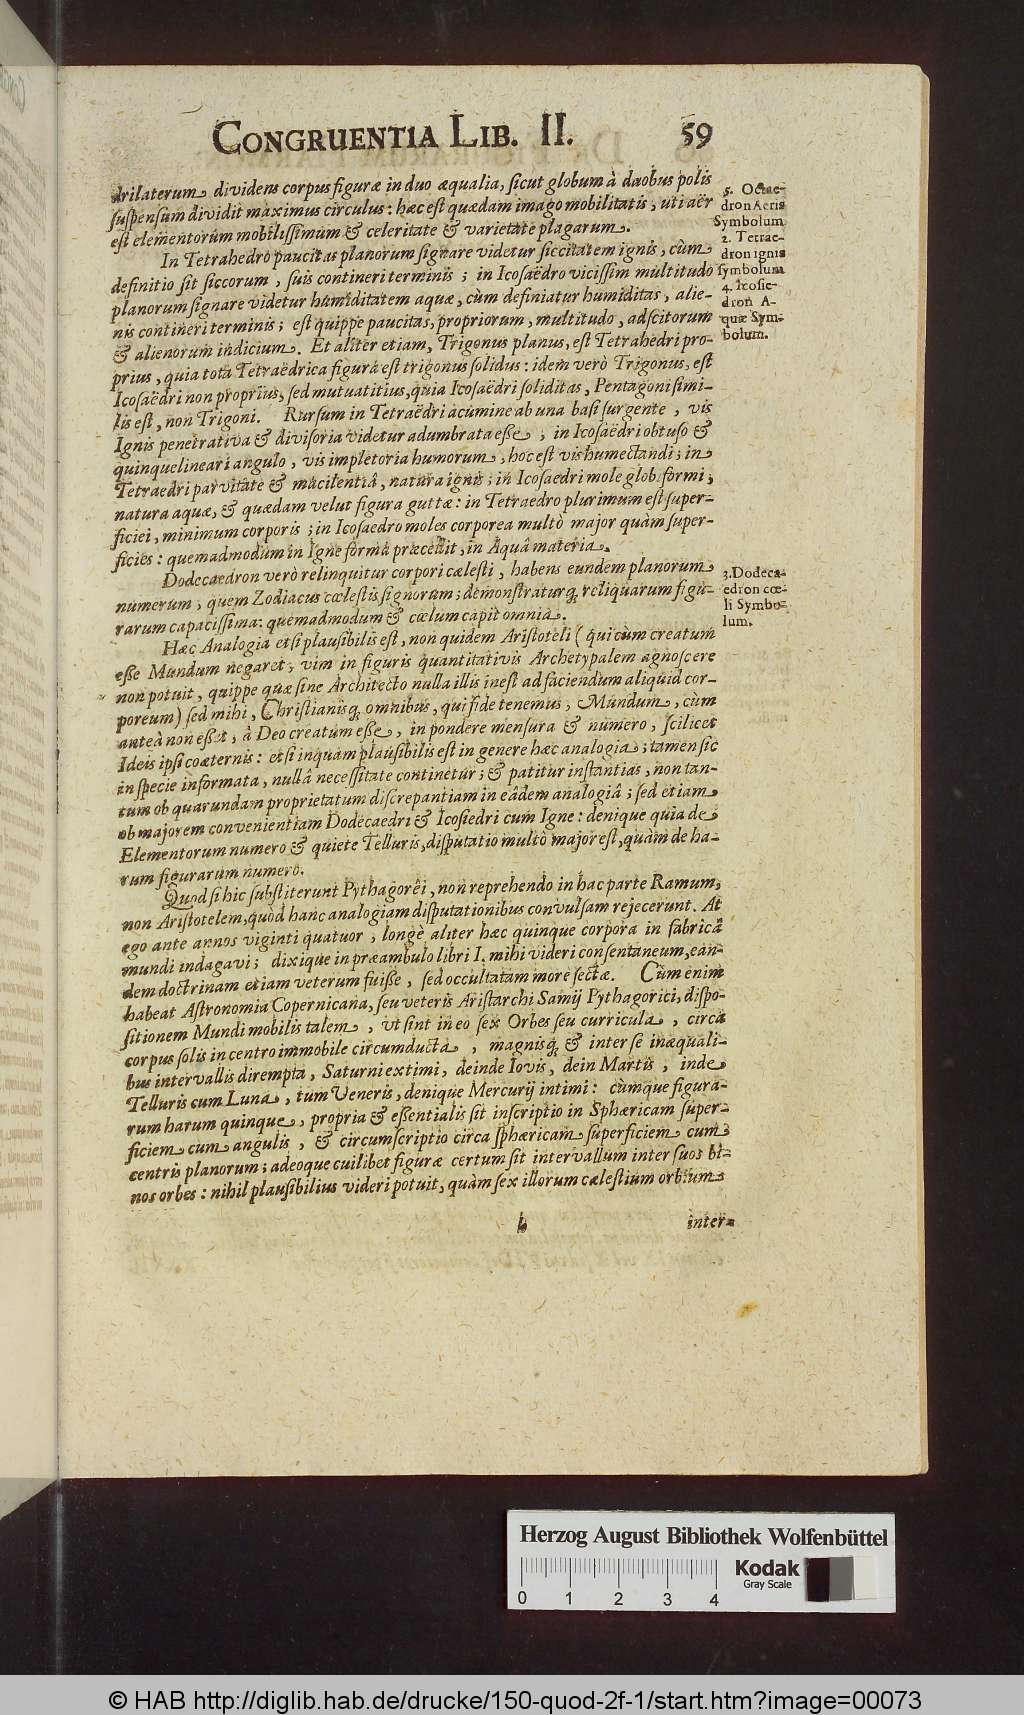 CONGRUENTIA LIB. II. 59
drilaterum dividens corpus figuræ in duo æqualia, sicut globum à duobus polis
suspensum dividit maximus circulus: hæc est quædam imago mobilitatis, uti aër
est elementorum mobilissimum & celeritate & varietate plagarum.
In Tetrahedro paucitas planorum signare videtur siccitatem ignis, cùm
definitio sit siccorum, suis contineri terminis; in Icosaëdro vicissim multitudo
planorum signare videtur humiditatem aquæ, cùm definiatur humiditas, alie-
nis contineri terminis; est quippe paucitas, propriorum, multitudo, adscitorum
& alienorum indicium. Et aliter etiam, Trigonus planus, est Tetrahedri pro-
prius, quia tota Tetraëdrica figura est trigonus solidus: idem verò Trigonus, est
Icosaëdri non proprius, sed mutuatitius, quia Icosaëdri soliditas, Pentagoni simi-
lis est, non Trigoni. Rursum in Tetraëdri acumine ab una basi surgente, vis
Ignis penetrativa & divisoria videtur adumbrata esse, in Icosaëdri obtuso &
quinquelineari angulo, vis impletoria humorum, hoc est vis humectandi; in
Tetraedri parvitate & macilentiâ, natura ignis; in Icosaedri mole globiformi,
natura aquæ, & quædam velut figura guttæ: in Tetraedro plurimum est super-
ficiei, minimum corporis; in Icosaedro moles corporea multò major quàm super-
ficies: quemadmodum in Igne forma præcedit, in Aquâ materia.
Dodecaedron verò relinquitur corpori cælesti, habens eundem planorum
numerum, quem Zodiacus cœlestis signorum; demonstraturq; reliquarum figu-
rarum capacissima: quemadmodum & cœlum capit omnia.
Hæc Analogia etsi plausibilis est, non quidem Aristoteli (qui cùm creatum
esse Mundum negaret, vim in figuris quantitativis Archetypalem agnoscere
non potuit, quippe quæ sine Architecto nulla illis inest ad faciendum aliquid cor-
poreum) sed mihi, Christianisq; omnibus, qui fide tenemus, Mundum, cùm
anteà non esset, à Deo creatum esse, in pondere mensura & numero, scilicet
Ideis ipsi coæternis: etsi inquam plausibilis est in genere hæc analogia; tamen sic
in specie informata, nullâ necessitate continetur; & patitur instantias, non tan-
tum ob quarundam proprietatum discrepantiam in eâdem analogiâ; sed etiam
ob majorem convenientiam Dodecaedri & Icosiedri cum Igne: denique quia de
Elementorum numero & quiete Telluris, disputatio multò major est, quàm de ha-
rum figurarum numero.
Quod si hic substiterunt Pythagorêi, non reprehendo in hac parte Ramum,
non Aristotelem, quòd hanc analogiam disputationibus convulsam rejecerunt. At
ego ante annos viginti quatuor, longè aliter hæc quinque corpora in fabricâ
mundi indagavi; dixique in præambulo libri I. mihi videri consentaneum, ean-
dem doctrinam etiam veterum fuisse, sed occultatam more sectæ. Cùm enim
habeat Astronomia Copernicana, seu veteris Aristarchi Samij Pythagorici, dispo-
sitionem Mundi mobilis talem, ut sint in eo sex Orbes seu curricula, circa
corpus solis in centro immobile circumducta, magnisq; & inter se inæquali-
bus intervallis dirempta, Saturni extimi, deinde Iovis, dein Martis, inde
Telluris cum Luna, tum Veneris, denique Mercurij intimi: cùmque figura-
rum harum quinque, propria & essentialis sit inscriptio in Sphæricam super-
ficiem cum angulis, & circumscriptio circa sphæricam superficiem cum
centris planorum; adeoque cuilibet figuræ certum sit intervallum inter suos bi-
nos orbes: nihil plausibilius videri potuit, quàm sex illorum cælestium orbium
h inter-
5. Octae-
dron Aeris
Symbolum
2. Tetrae-
dron ignis
symbolum
4. Icosie-
dron A-
quæ Sym-
bolum.
3. Dodeca-
edron cœ-
li Symbo-
lum.
Herzog August Bibliothek Wolfenbüttel
0 1 2 3 4
Kodak
Gray Scale
© HAB http://diglib.hab.de/drucke/150-quod-2f-1/start.htm?image=00073